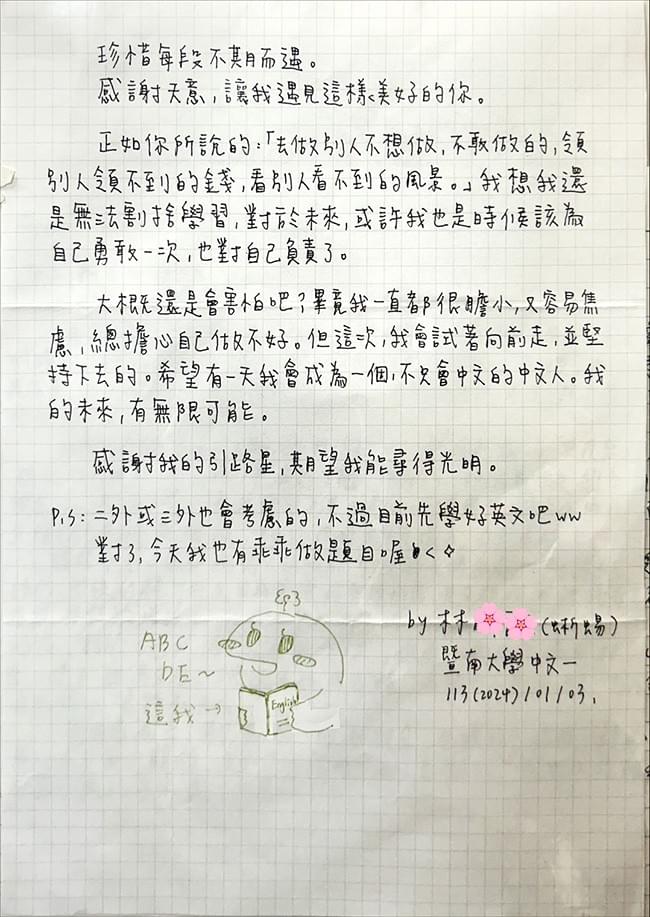 珍惜每段不期而遇。
感謝天意，讓我遇見這樣美好的你。
正如你所說的：「去做別人不想做，不敢做的，領
別人領不到的錢，看別人看不到的風景。」我想我還
是無法割捨學習，對於未來，或許我也是時候該為
自己勇敢一次，也對自己負責了。
大概還是會害怕吧？畢竟我一直都很膽小，又容易焦
慮，總擔心自己做不好。但這次，我會試著向前走，並堅
持下去的。希望有一天我會成為一個，不只會中文的中文人。我
的未來，有無限可能。
感謝我的引路星，期望我能尋得光明。
P.S：二外或三外也會考慮的，不過目前先學好英文吧ww
對了，今天我也有乖乖做題目喔
ABC
DE～
這我→
English
by 林
(蜥蜴)
暨南大學中文一
113(2024)/01/03.